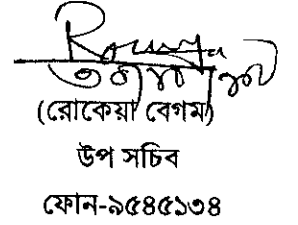 (রোকেয়া বেগম)
উপ সচিব
ফোন-৯৫৪৫১৩৪